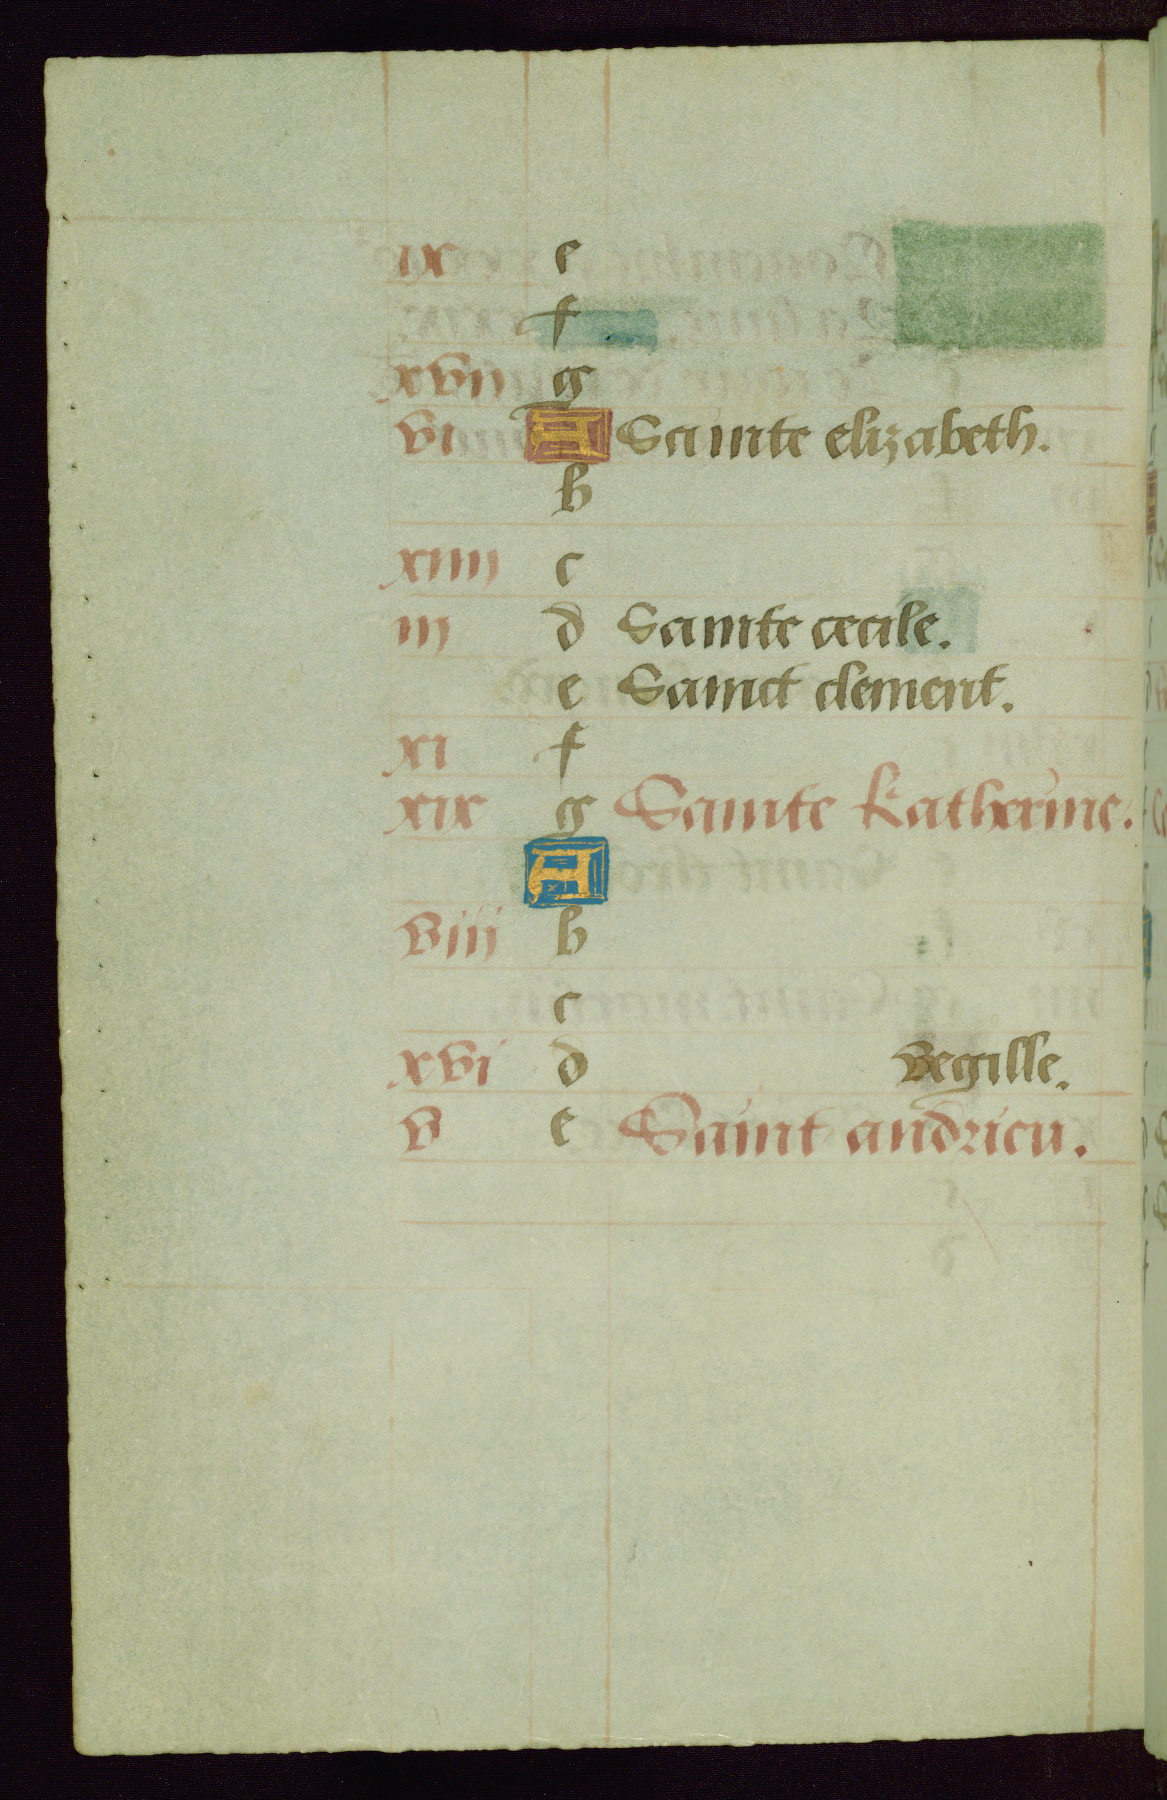 ix e
f
xvii g
vi A Sainte elizabeth.
b
xiiii c
iii d Sainte cecile.
e Sainct clement.
xi f
xix g Sainte katherine.
A
viii b
c
xvi d vegille.
v e Saint andrieu.